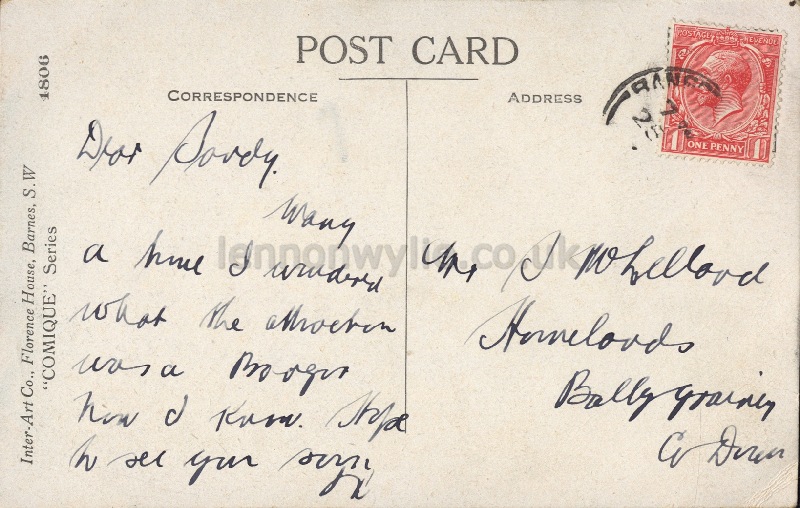 POST CARD
CORRESPONDENCE
ADDRESS
POSTAGE REVENUE
ONE PENNY
1 1
BANG
Inter-Art Co., Florence House, Barnes, S.W
"COMIQUE" Series
4806
Dear Sandy.
Many
a time I wondered
what the attraction
was a Bangor
now I know. Hope
to see you soon
x
J McLelland
Homelands
Ballygrainey
Co Down
lennonwylie.co.uk